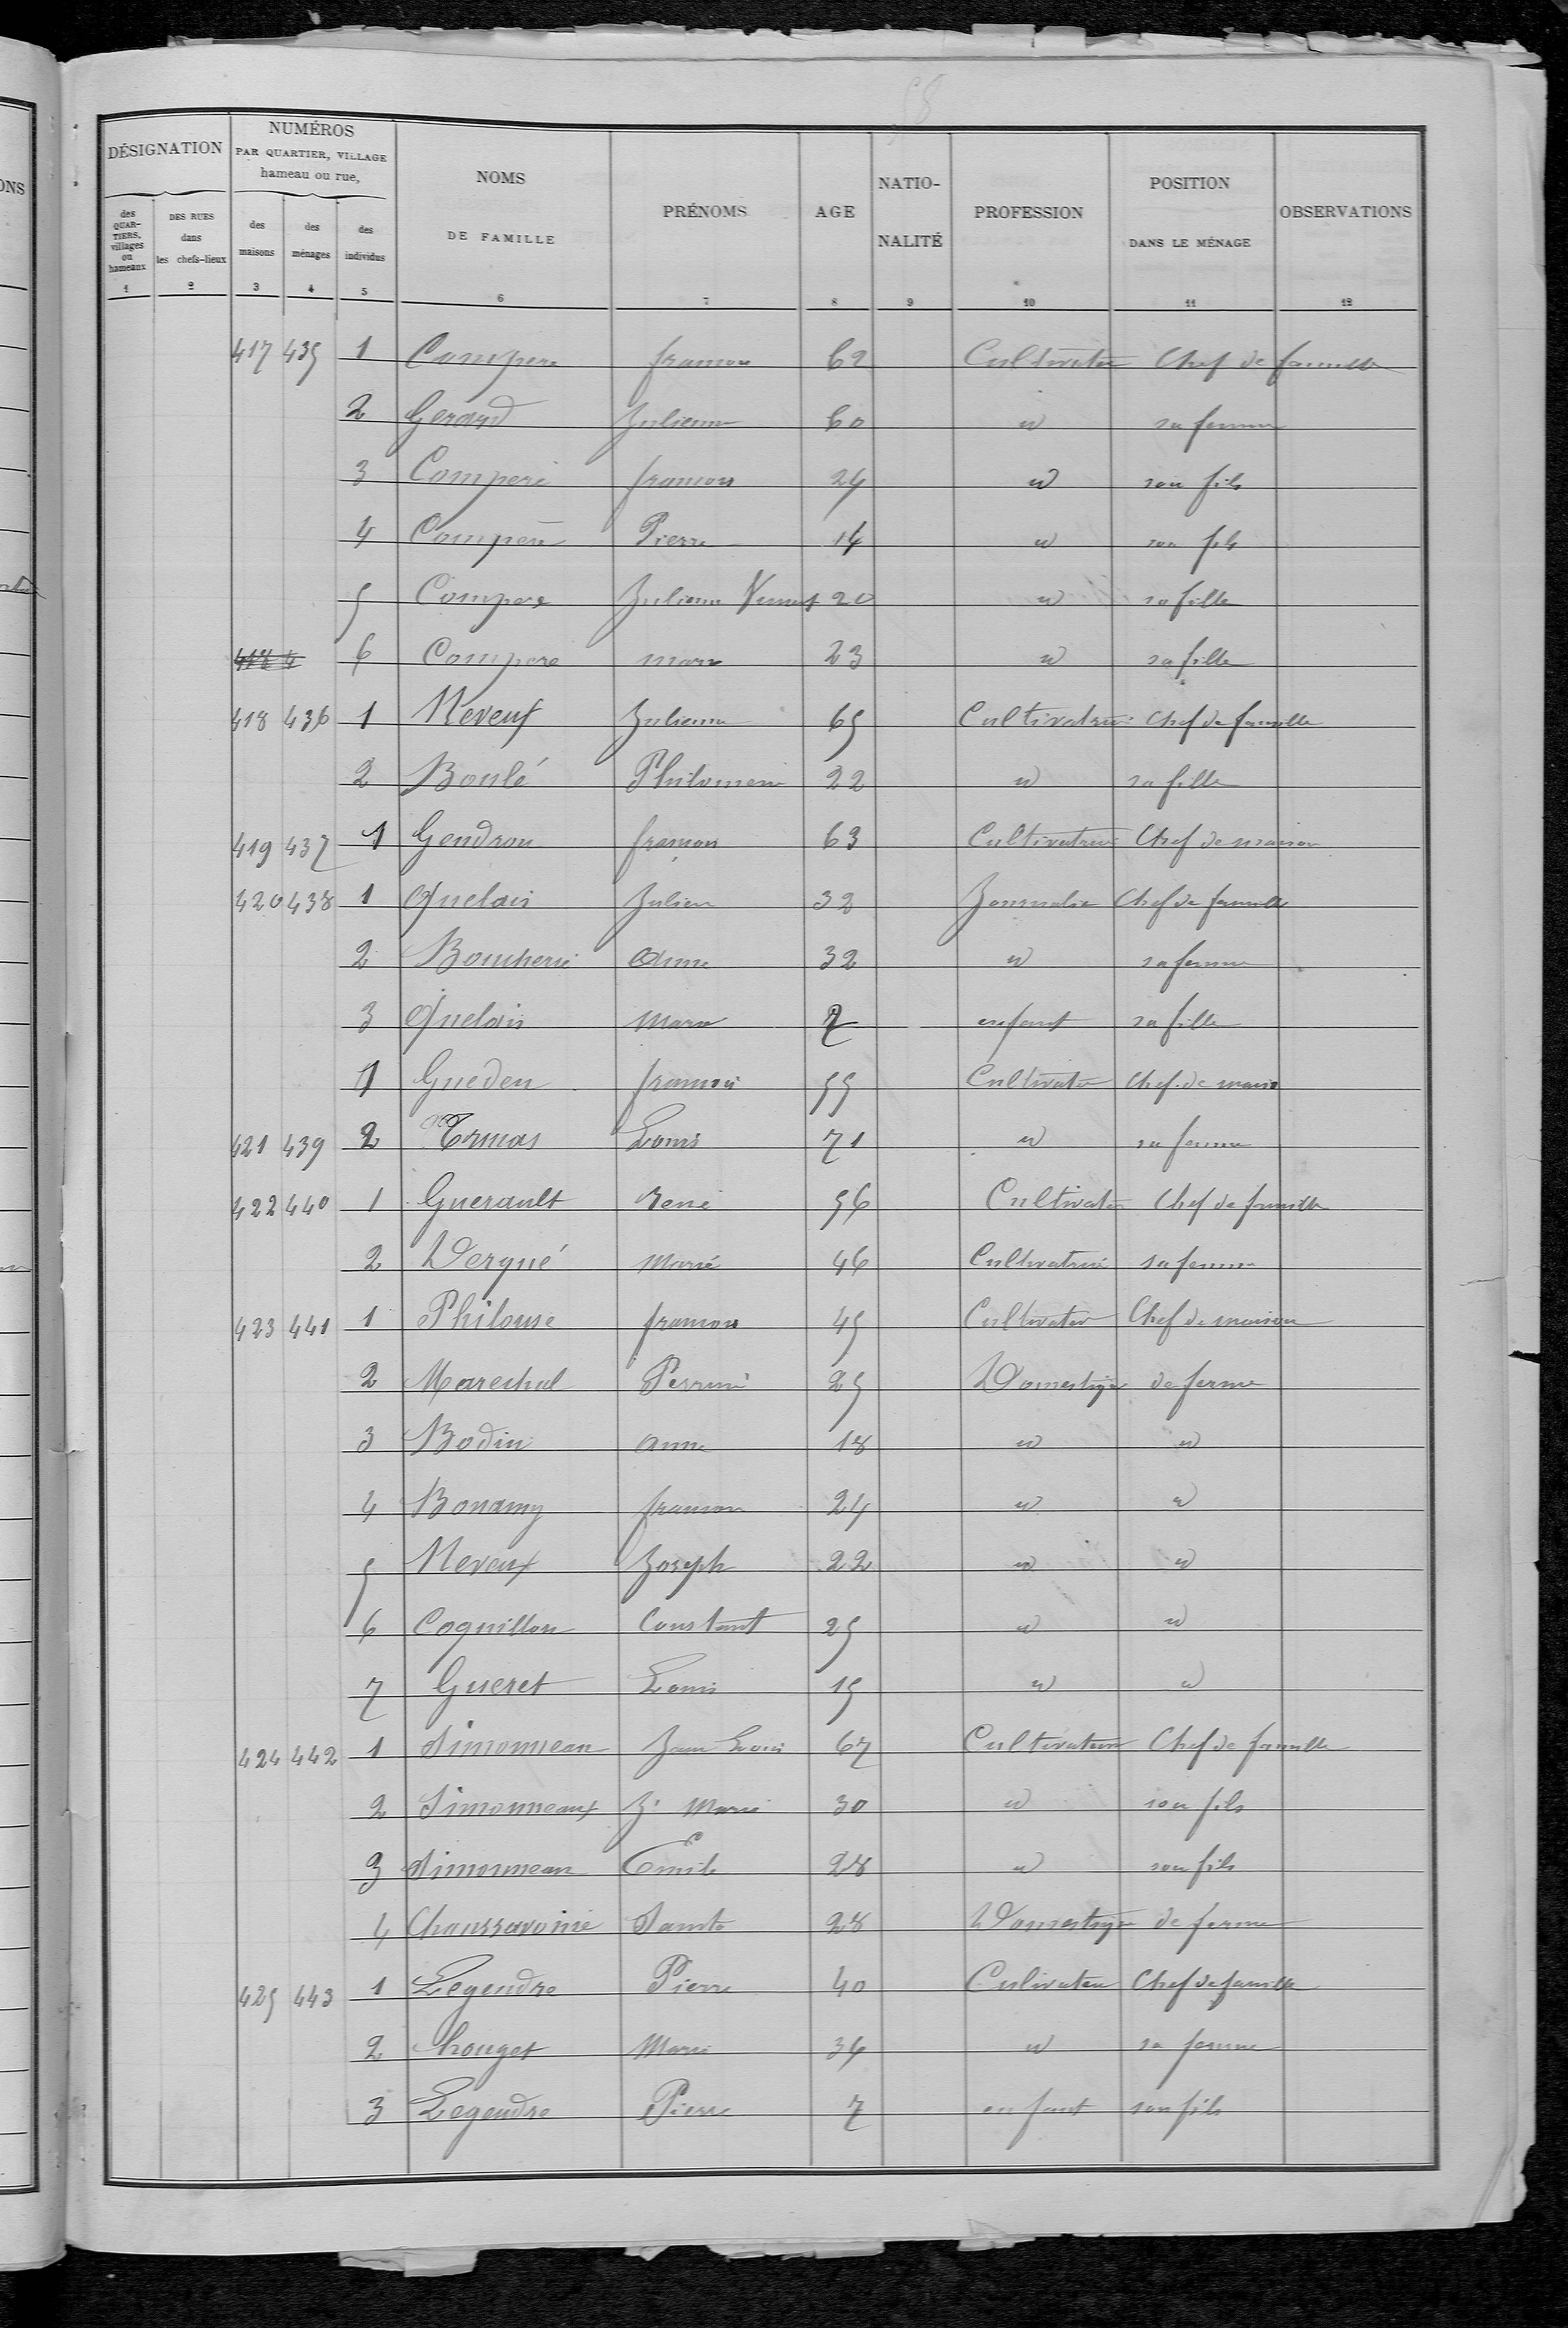 58
DÉSIGNATION
NUMÉROS PAR QUARTIER, VILLAGE hameau ou rue,
des QUARTIERS, villages ou hameaux 1
DES RUES dans les chefs-lieux 2
des maisons 3
des ménages 4
des individus 5
NOMS DE FAMILLE 6
PRÉNOMS 7
AGE 8
NATIONALITÉ 9
PROFESSION 10
POSITION DANS LE MÉNAGE 11
OBSERVATIONS 12
417 435 1 Compere 62 Cultivateur Chef de famille
2 Gerard Julienne 60 sa femme
3 Compere francois 24 son fils
4 Compere Pierre 14 son fils
5 Compere Julienne 20 sa fille
418 4 6 Compere marie 23 sa fille
418 436 1 Neveux Julienne 65 Cultivatrice Chef de famille
2 Boulé Philomene 22 sa fille
419 437 1 Gendron 63 Cultivatrice Chef de maison
420 438 1 Quelais Julien 32 Journalier Chef de famille
2 Anne 32 sa femme
3 Quelais Marie 7 enfant sa fille
1 Gueden francois 55 Cultivateur Chef de maison
421 439 2 Louis 71 sa femme
422 440 1 Guerault René 56 Cultivateur Chef de famille
2 Vergné Marie 46 Cultivatrice sa femme
423 441 1 Philouse francois 45 Cultivateur Chef de maison
2 Marechal Perrine 25 Domestique de ferme
3 Bodin Anne 18
4 Bonamy 24
5 Neveux Joseph 22
6 Coquillon Constant 25
7 Gueret Louis 15
424 442 1 Simonneau Jean Louis 67 Cultivateur Chef de famille
2 Simonneaux Jn Marie 30 son fils
3 Simonneau Emile 28 son fils
4 Chaussavoine 28 Domestique de ferme
425 443 1 Legendre Pierre 40 Culivateur Chef de famille
2 Marie 34 sa femme
3 Legendre Pierre 7 enfant son fils